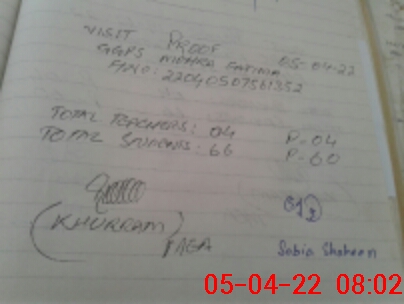 VISIT PROOF 05-04-22
GGPS MOHRA FATIMA
F/NO: 22040507561352
TOTAL TEACHERS: 04 P-04
TOTAL STUDENTS: 66 P-60
(KHURRAM)
Sabia Shaheen
05-04-22 08:02